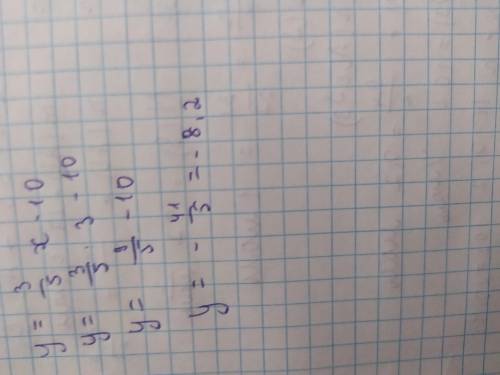 y = 3/5 x - 10
y = 3/5 · 3 - 10
y = 9/5 - 10
y = - 41/5 = - 8,2